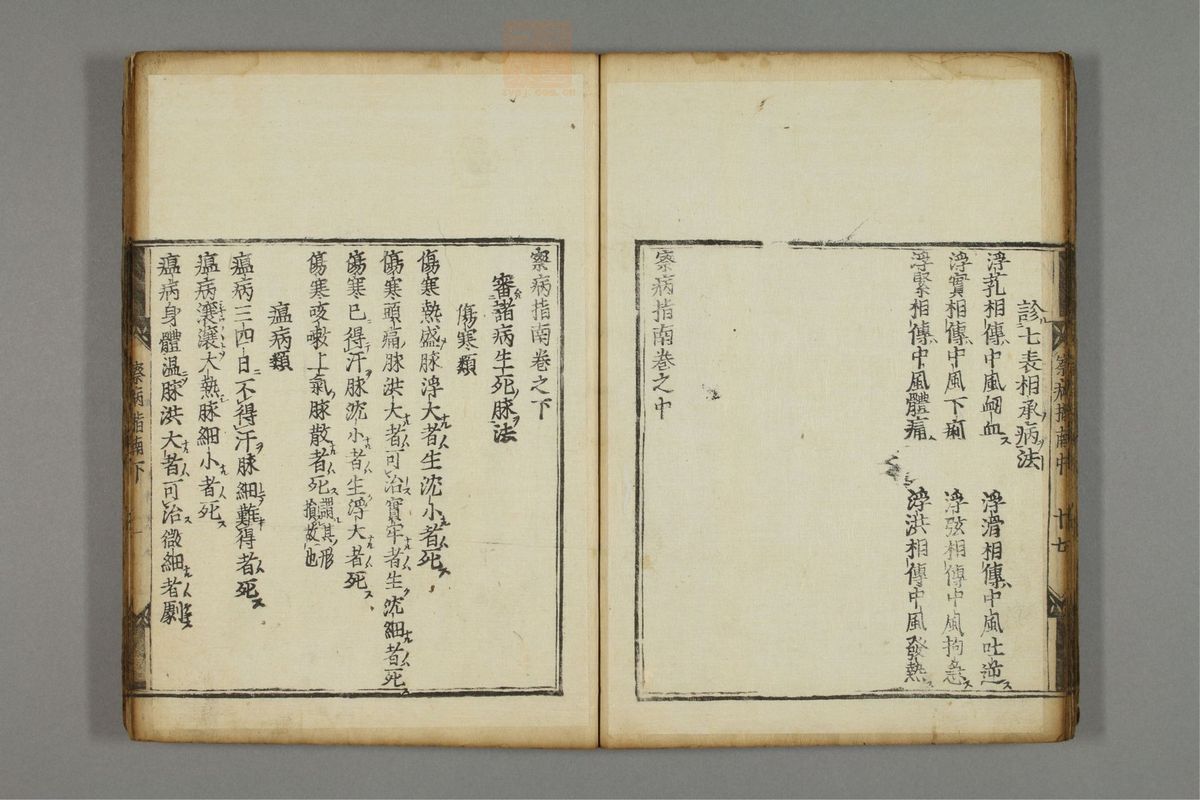 診七表相承病法
浮芤相傳中風衂血 浮滑相傳中風吐逆
浮實相傳中風下痢 浮弦相傳中風拘急
浮緊相傳中風體痛 浮洪相傳中風發熱
察病指南卷之中
察病指南中 十七
察病指南卷之下
審諸病生死脉法
傷寒類
傷寒熱盛脉浮大者生沈小者死
傷寒頭痛脉洪大者可治實牢者生沈細者死
傷寒已得汗脉沈小者生浮大者死
傷寒咳嗽上氣脉散者死謂其形損故也
瘟病類
瘟病三四日不得汗脉細難得者死
瘟病穰穰大熱脉細小者死
瘟病身體温脉洪大者可治微細者劇
察病指南下